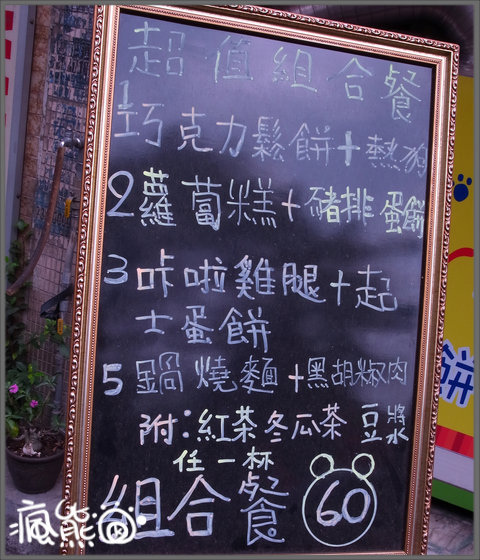 超值組合餐
1
巧克力鬆餅+熱狗
2蘿蔔糕+豬排蛋餅
3咔啦雞腿+起
士蛋餅
5鍋燒麵+黑胡椒肉
附:紅茶冬瓜茶 豆漿
任一杯
組合餐 60
餅
瘋熊